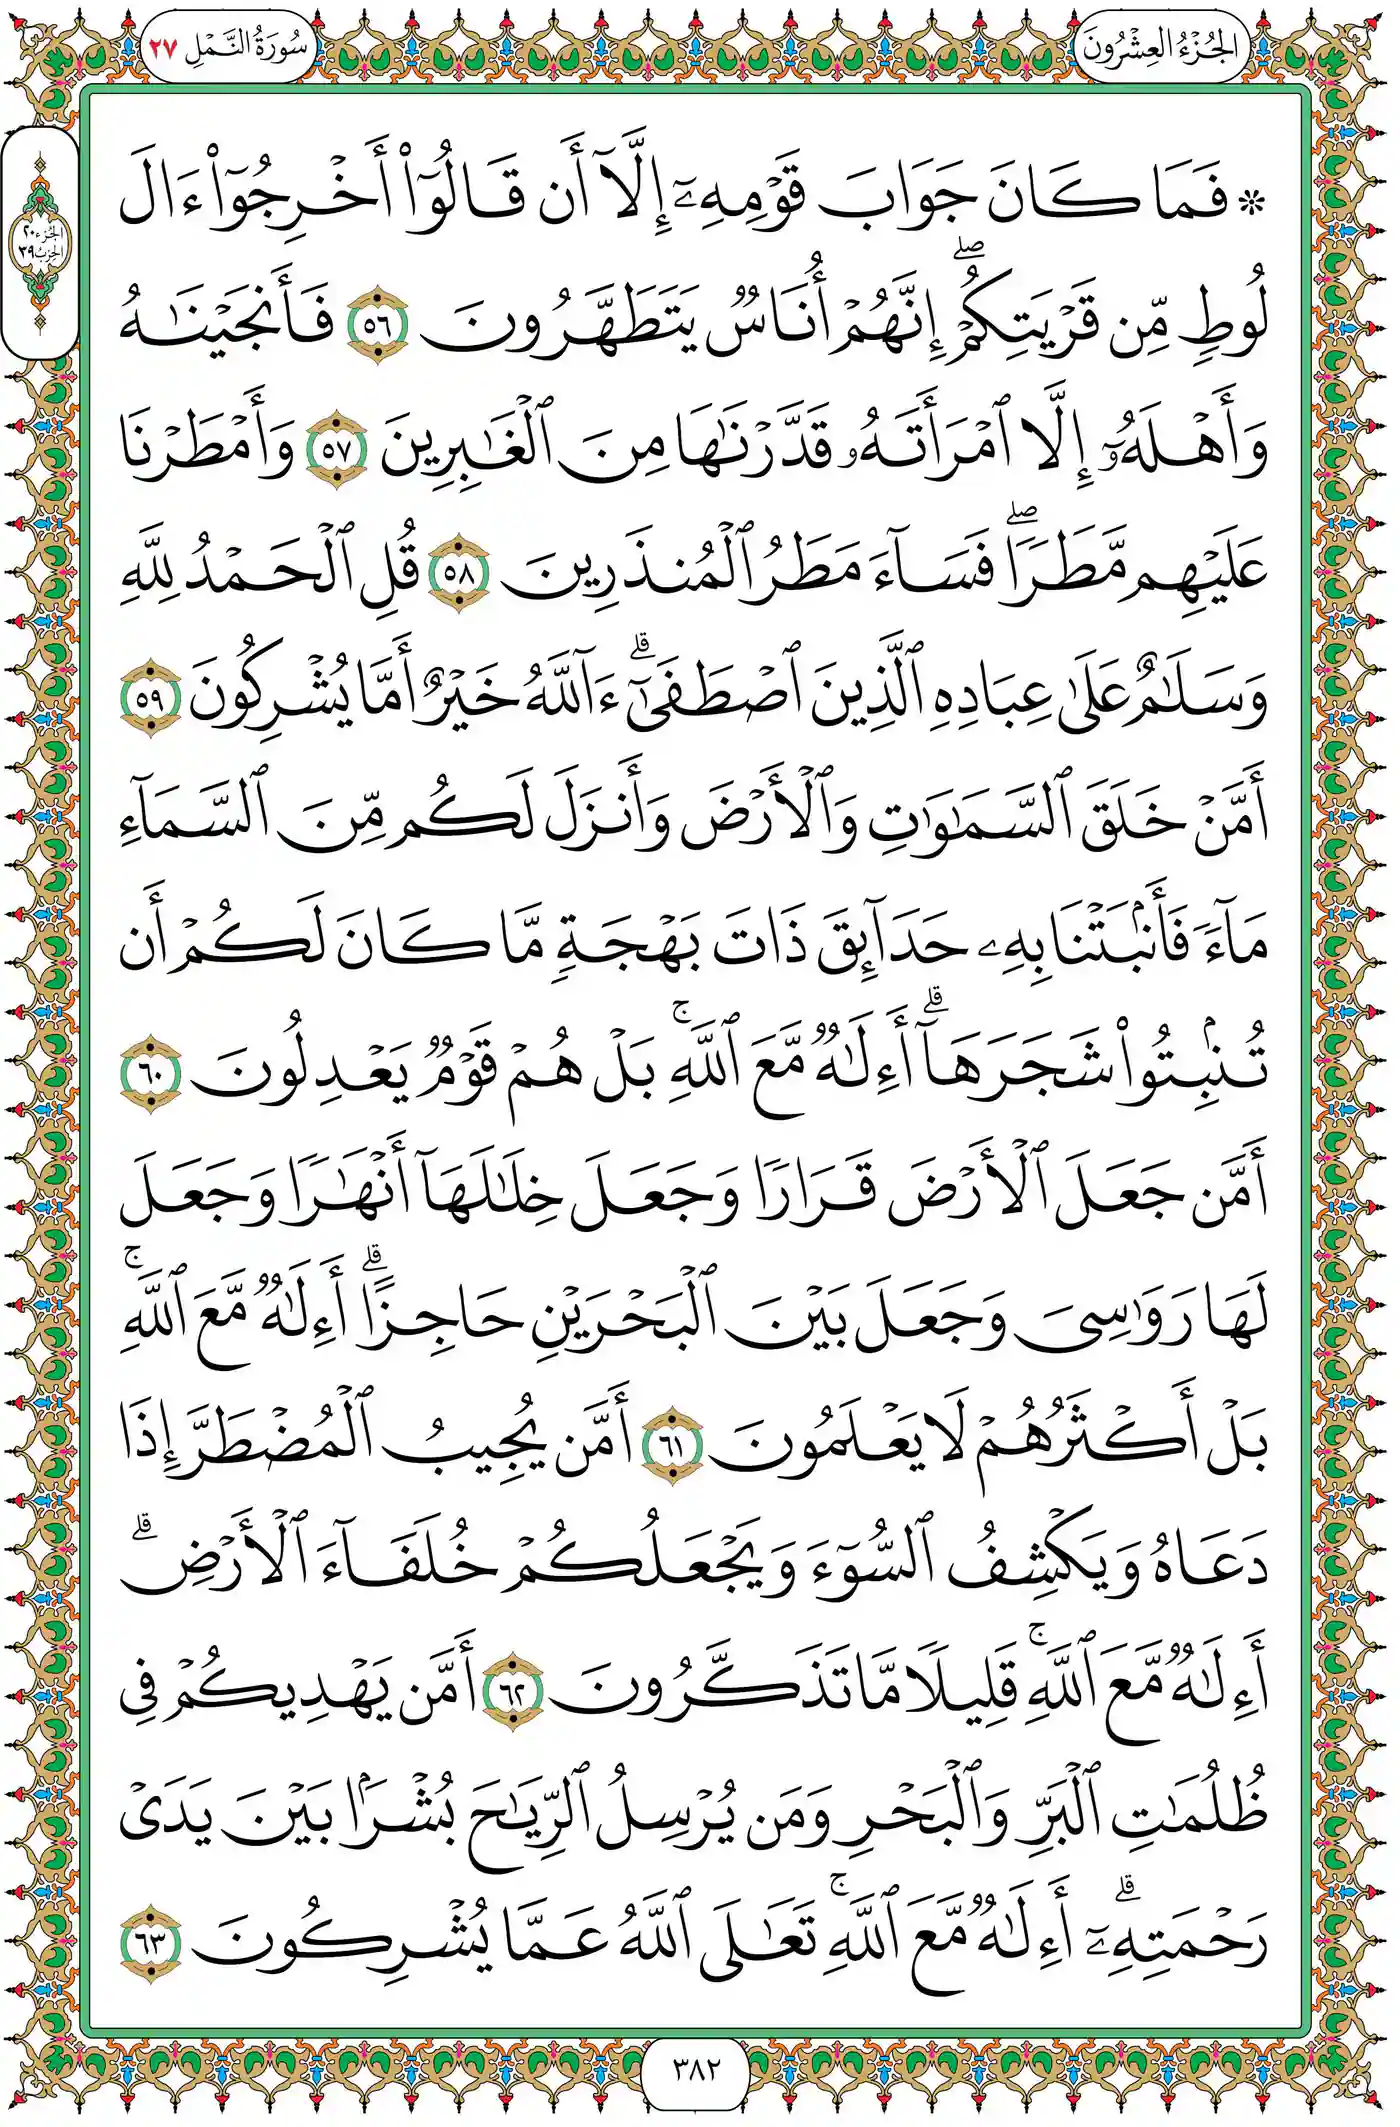 سُورَةُ النَّمْلِ ٢٧
الجُزْءُ العِشْرُونَ
الجزء ٢٠
الحزب ٣٩
۞ فَمَا كَانَ جَوَابَ قَوْمِهِۦٓ إِلَّآ أَن قَالُوٓا۟ أَخْرِجُوٓا۟ ءَالَ
لُوطٍ مِّن قَرْيَتِكُمْ ۖ إِنَّهُمْ أُنَاسٌ يَتَطَهَّرُونَ ٥٦ فَأَنجَيْنَٰهُ
وَأَهْلَهُۥٓ إِلَّا ٱمْرَأَتَهُۥ قَدَّرْنَٰهَا مِنَ ٱلْغَٰبِرِينَ ٥٧ وَأَمْطَرْنَا
عَلَيْهِم مَّطَرًا ۖ فَسَآءَ مَطَرُ ٱلْمُنذَرِينَ ٥٨ قُلِ ٱلْحَمْدُ لِلَّهِ
وَسَلَٰمٌ عَلَىٰ عِبَادِهِ ٱلَّذِينَ ٱصْطَفَىٰٓ ۗ ءَآللَّهُ خَيْرٌ أَمَّا يُشْرِكُونَ ٥٩
أَمَّنْ خَلَقَ ٱلسَّمَٰوَٰتِ وَٱلْأَرْضَ وَأَنزَلَ لَكُم مِّنَ ٱلسَّمَآءِ
مَآءً فَأَنۢبَتْنَا بِهِۦ حَدَآئِقَ ذَاتَ بَهْجَةٍ مَّا كَانَ لَكُمْ أَن
تُنۢبِتُوا۟ شَجَرَهَآ ۗ أَءِلَٰهٌ مَّعَ ٱللَّهِ ۚ بَلْ هُمْ قَوْمٌ يَعْدِلُونَ ٦٠
أَمَّن جَعَلَ ٱلْأَرْضَ قَرَارًا وَجَعَلَ خِلَٰلَهَآ أَنْهَٰرًا وَجَعَلَ
لَهَا رَوَٰسِىَ وَجَعَلَ بَيْنَ ٱلْبَحْرَيْنِ حَاجِزًا ۗ أَءِلَٰهٌ مَّعَ ٱللَّهِ ۚ
بَلْ أَكْثَرُهُمْ لَا يَعْلَمُونَ ٦١ أَمَّن يُجِيبُ ٱلْمُضْطَرَّ إِذَا
دَعَاهُ وَيَكْشِفُ ٱلسُّوٓءَ وَيَجْعَلُكُمْ خُلَفَآءَ ٱلْأَرْضِ ۗ
أَءِلَٰهٌ مَّعَ ٱللَّهِ ۚ قَلِيلًا مَّا تَذَكَّرُونَ ٦٢ أَمَّن يَهْدِيكُمْ فِى
ظُلُمَٰتِ ٱلْبَرِّ وَٱلْبَحْرِ وَمَن يُرْسِلُ ٱلرِّيَٰحَ بُشْرًۢا بَيْنَ يَدَىْ
رَحْمَتِهِۦٓ ۗ أَءِلَٰهٌ مَّعَ ٱللَّهِ ۚ تَعَٰلَى ٱللَّهُ عَمَّا يُشْرِكُونَ ٦٣
٣٨٢